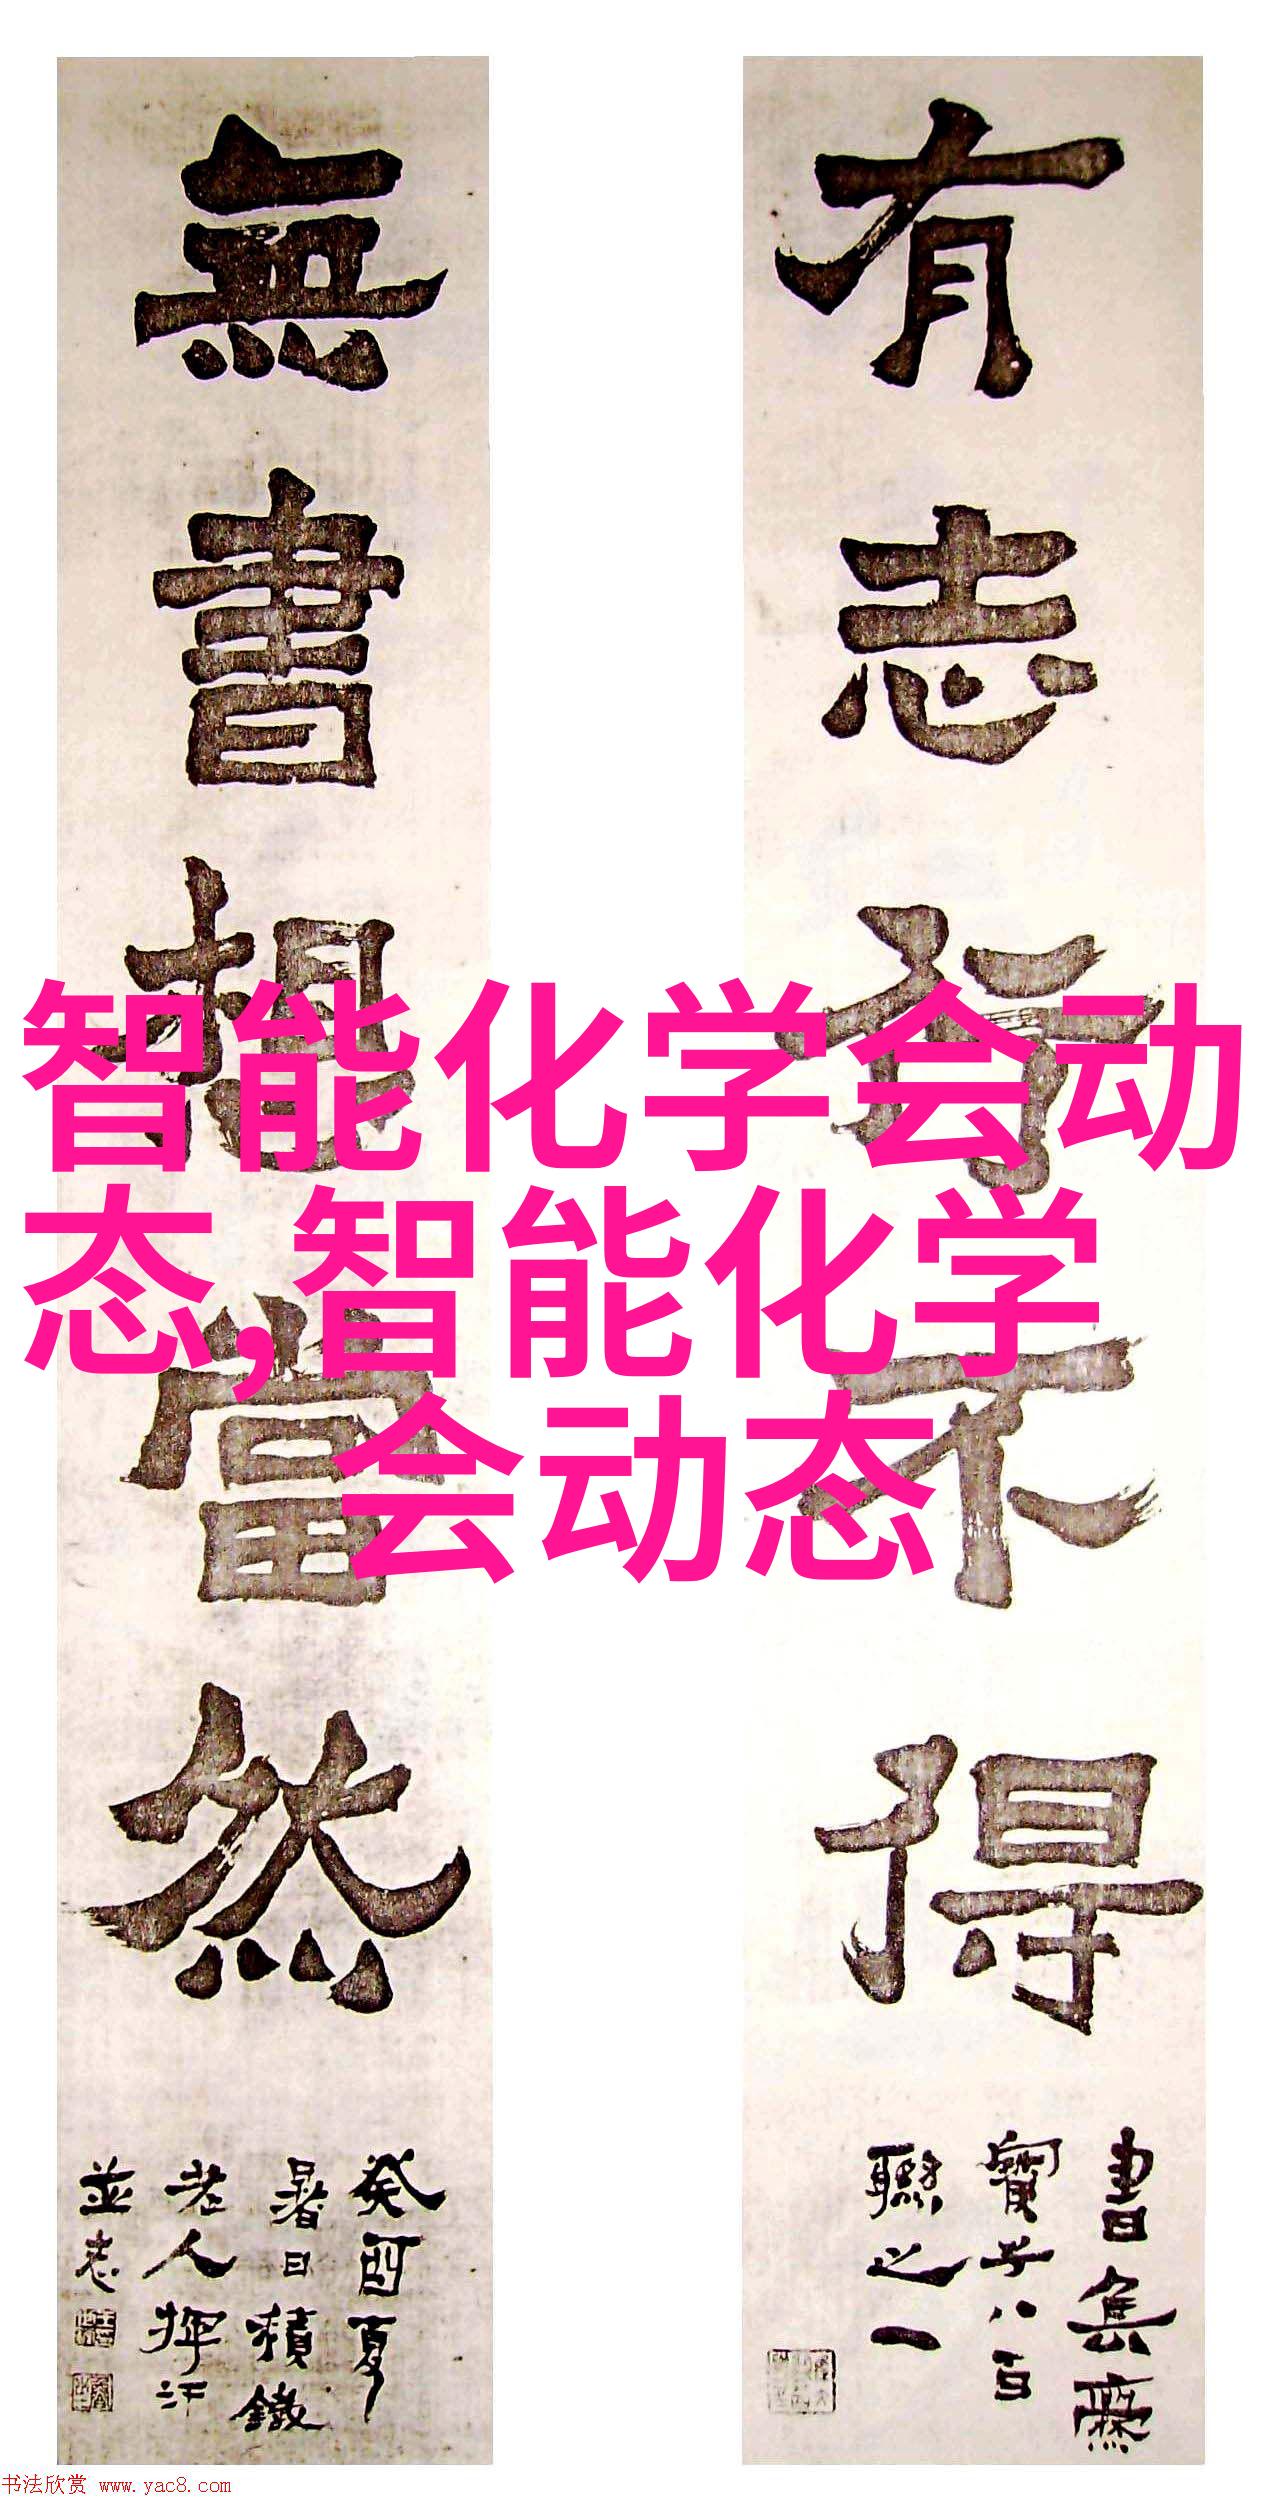 有志者不得
書集齋
寶子八百
聯之一
無書想當然
癸酉夏
暑日積鐵
老人揮汗
並志
智能化学会动
态,智能化学
会动态
书法欣赏 www.yac8.com